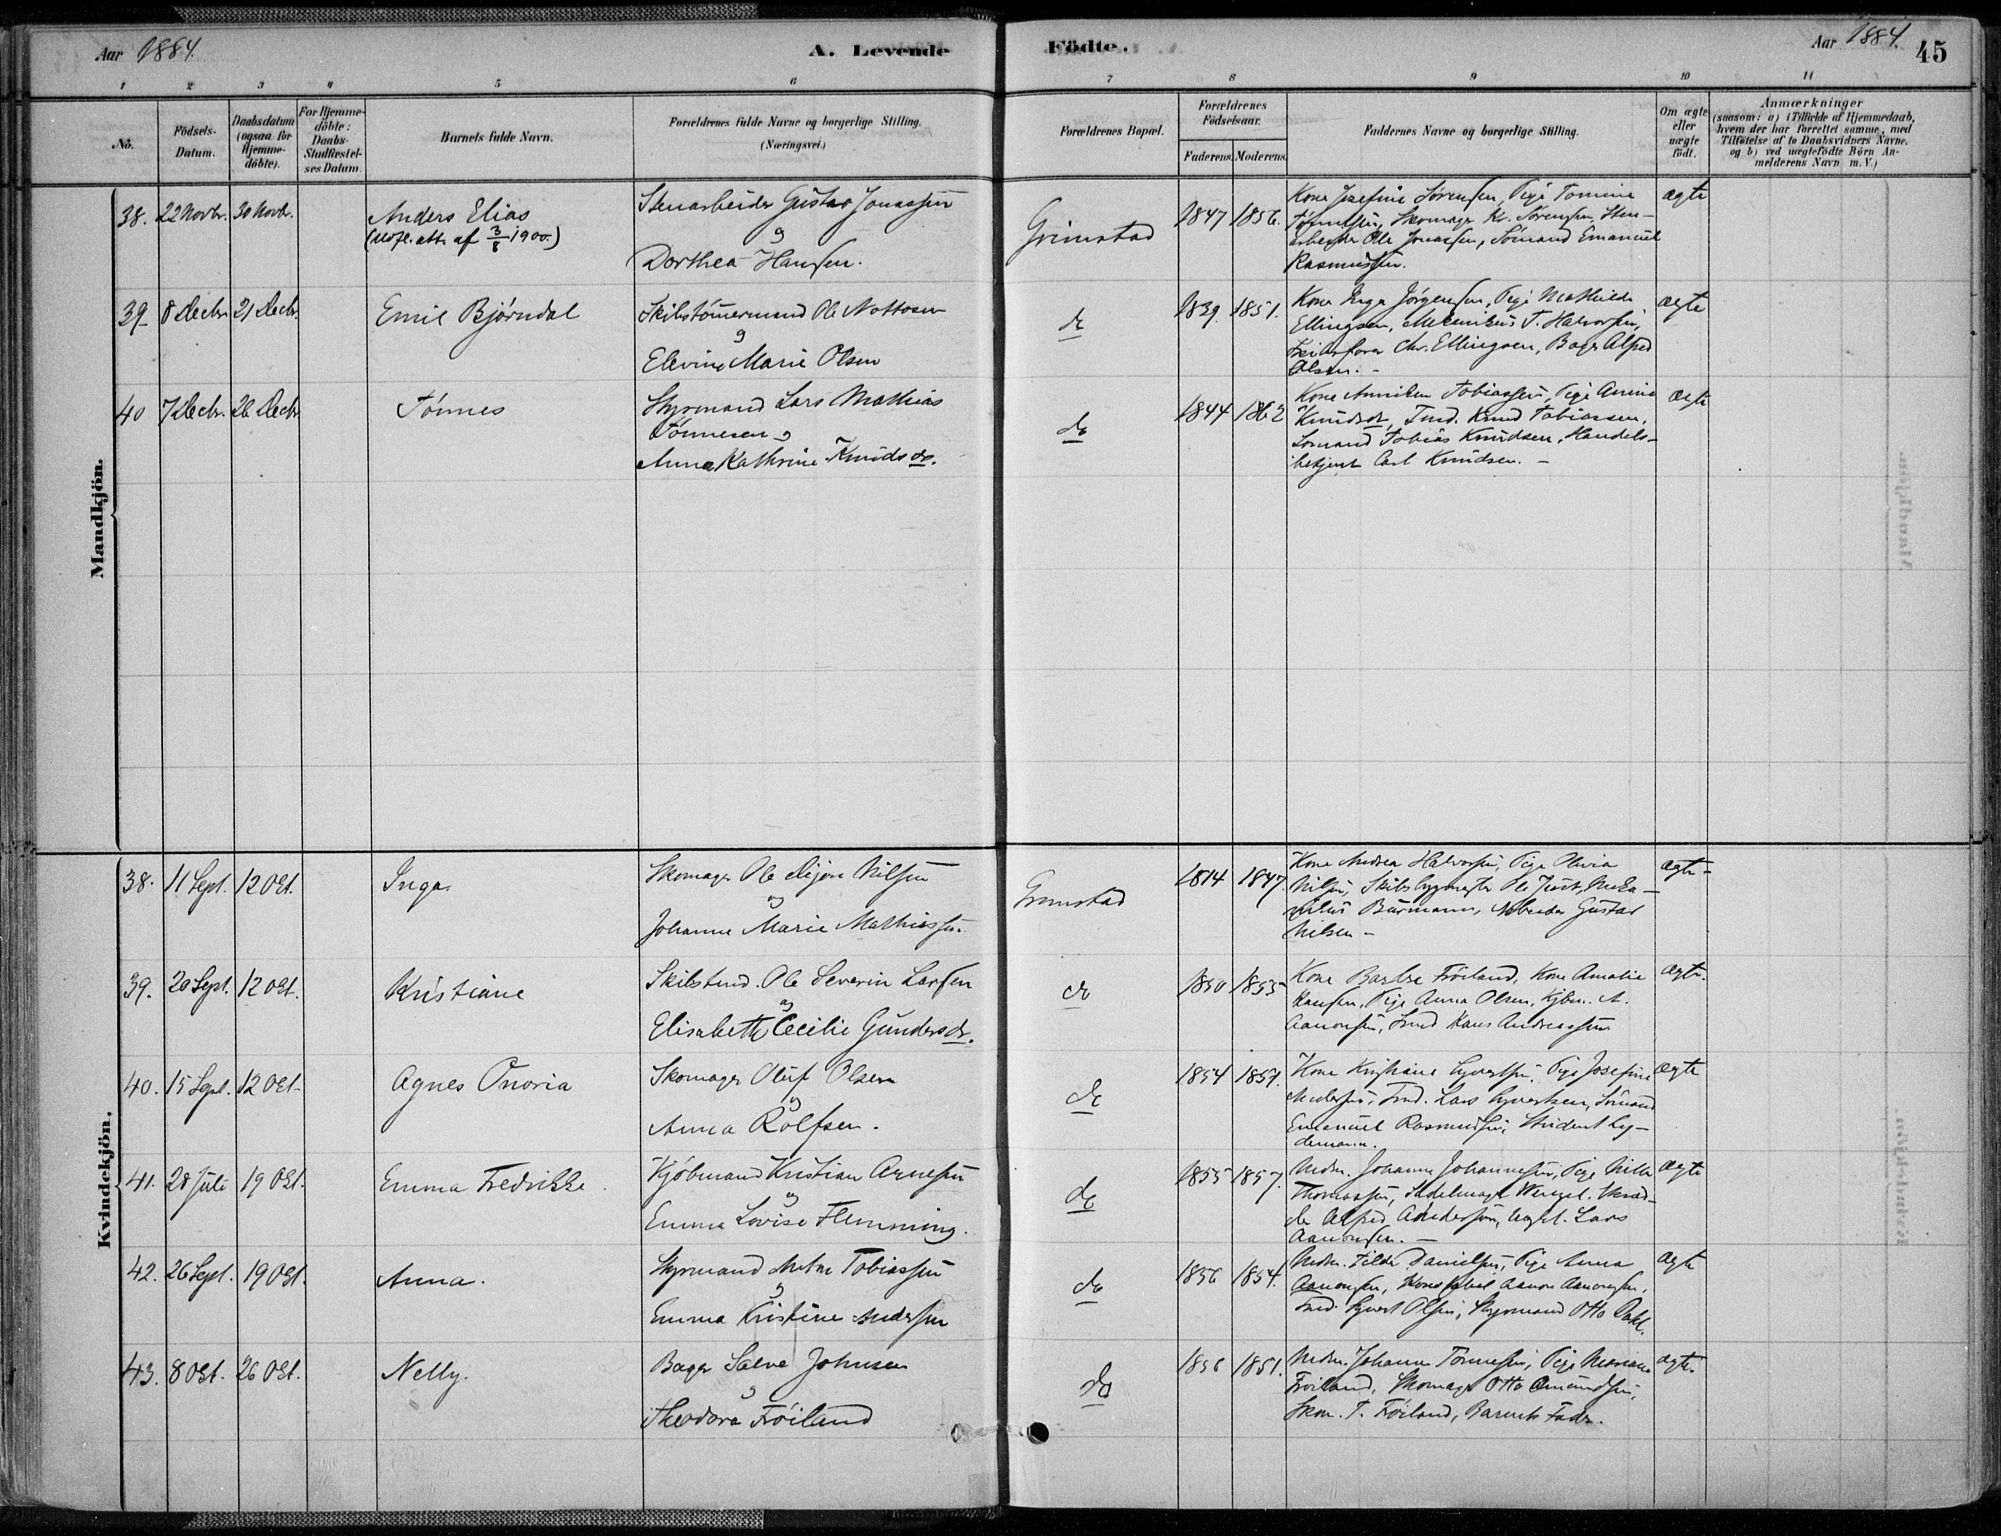 Aar 1884. A. Levende Födte. Aar 1884. 45
1 2 3 4 5 6 7 8 9 10 11
No.
Födsels-Datum.
Daabsdatum (ogsaa for Hjemme-döbte).
For Hjemme-döbte: Daabs-Stadfæstel-ses Datum.
Barnets fulde Navn.
Forældrenes fulde Navne og borgerlige Stilling. (Næringsvei.)
Forældrenes Bopæl.
Forældrenes Födselsaar.
Faderens. Moderens.
Faddernes Navne og borgerlige Stilling.
Om ægte eller uægte födt.
Anmærkninger
(saasom: a) i Tilfælde af Hjemmedaab,
hvem der har forrettet samme, med
Tilföielse af to Daabsvidners Navne,
og b) ved uægtefödte Börn An-
melderens Navn m. V.)
Mandkjön.
38. 22 Novbr. 30 Novb. Anders Elias Stenarbeider Gustav Jonassen Grimstad 1847 1856. Kone Josefine Sørensen, Pige Tomine ægte
(Udfl. att. af 3/8 1900.) og
Tønnessen, Skomager Kr. Sørensen, Sten-
Dorthea Hansen.
arbeider Ole Jonassen, Sömand Emanuel
Rasmussen.
39 8 Decbr 21 Decbr. Emil Bjørndal Skibstömmermand Ole Nottosen do 1839. 1851. Kone Inga Jörgensen, Pige Mathilde ægte
og
Ellingsen, Mekanikus T. Halvorsen,
Elevine Marie Olsen
Chr. Ellingsen, Bager Alfred
Olsen. -
40 7 Decbr. 26 Decbr Tönnes Styrmand Lars Mathias do 1844 1862 Kone Anniken Tobiassen, Pige Amine ægte
Tönnesen og
Knudsdr, Tmd. Knud Tobiassen,
Anna Kathrine Knudsdr.
Sömand Tobias Knudsen, Handels-
betjent Carl Knudsen. -
Kvindekjön.
38. 11 Sept. 12 Oct. Inga Skomager Ole Nilsen Grimstad 1814 1847. Kone Andrea Halvorsen, Pige Olivia ægte -
og
Nilsen, Skibsbygmester Ole Mcka-
Johanne Marie Mathiesen.
nikus Burmann, Gustav
Nilsen -
39. 20 Sept. 12 Oct. Kristiane Skibstmd. Ole Severin Larsen do 1850 1855 Kone Barbra Fröiland, Kone Amalie ægte.
og
Hansen, Pige Anna Olsen, Kjbm. A.
Elisabeth Cecilie Gundersdr.
Aanonsen, Hans Andreassen
40. 15 Sept. 12 Oct. Agnes Onoria Skomager Oluf Olsen do 1854 1857. Kone Kristiane Syvertsen, Pige Josefine ægte
og
Andersen, Tmd. Lars Syvertsen, Sömand
Anna Rolfsen.
Emanuel Rasmussen, Student Ly-
demann.
41. 28 Juli 19 Oct. Emma Fredrikke. Kjöbmand Kristian Arnesen do 1855 1857. Mdm. Johanne Johannessen, Pige Milla ægte
og
Thomassen, Sadelmager Wengel. Skræd-
Emma Lovise Flemming.
der Alfred Andersen, Lars
Aanonsen. -
42. 26 Sept. 19 Oct. Anna. Styrmand Anton Tobiassen do 1856 1854. Mdm. Danielsen, Pige Anna ægte
og
Aanonsen, Konstabel Aanon Aanonsen,
Emma Kristine Andersen
Tmd. Syvert Olsen, Styrmand Otto Dahl.
43. 8 Oct. 26 Oct. Nelly. Bager Salve Johnsen do 1856 1851. Mdm. Johanne Tönnesen, Pige Mariane ægte.
og
Fröiland, Skomager Otto Amundsen,
Theodora Fröiland
Skom. T. Fröiland, Barnets Fader.